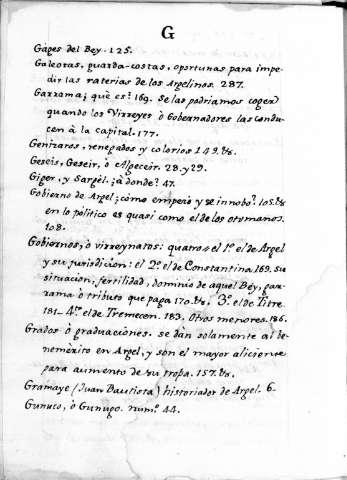 G
Gages del Bey. 125.
Galeotas, guarda-costas, oportunas para impe-
dir las raterias de los Argelinos. 287.
Garrama; què es? 169. Se las podriamos coger
quando los Virreyes ò Gobernadores las condu-
cen à la capital. 177.
Genizaros, renegados y colorios 149.
Geseis, Geseir, ò Algeceir. 28. y 29.
Giger, y Sargèl. ¿à donde? 47.
Gobierno de Argel; còmo empezò y se innobò? 105.
en lo politico es quasi como el de los otomanos.
108.
Gobiernos, ò virreynatos: quatro el 1º. el de Argel
y su jurisdicion: el 2º. el de Constantina 169. su
situacion, fertilidad, dominio de aquel Bèy, gar-
rama ò tributo que paga 170. 3º. el de Titre.
181. 4º. el de Tremecen. 183. Otros menores. 186.
Grados ò graduaciònes. se dàn solamente al be-
nemèrito en Argel, y son el mayor aliciente
para aumento de su tropa. 157.
Gramaye (Juan Bautista) historiador de Argel. 6.
Gunuco, ò Gunugo. num.º 44.